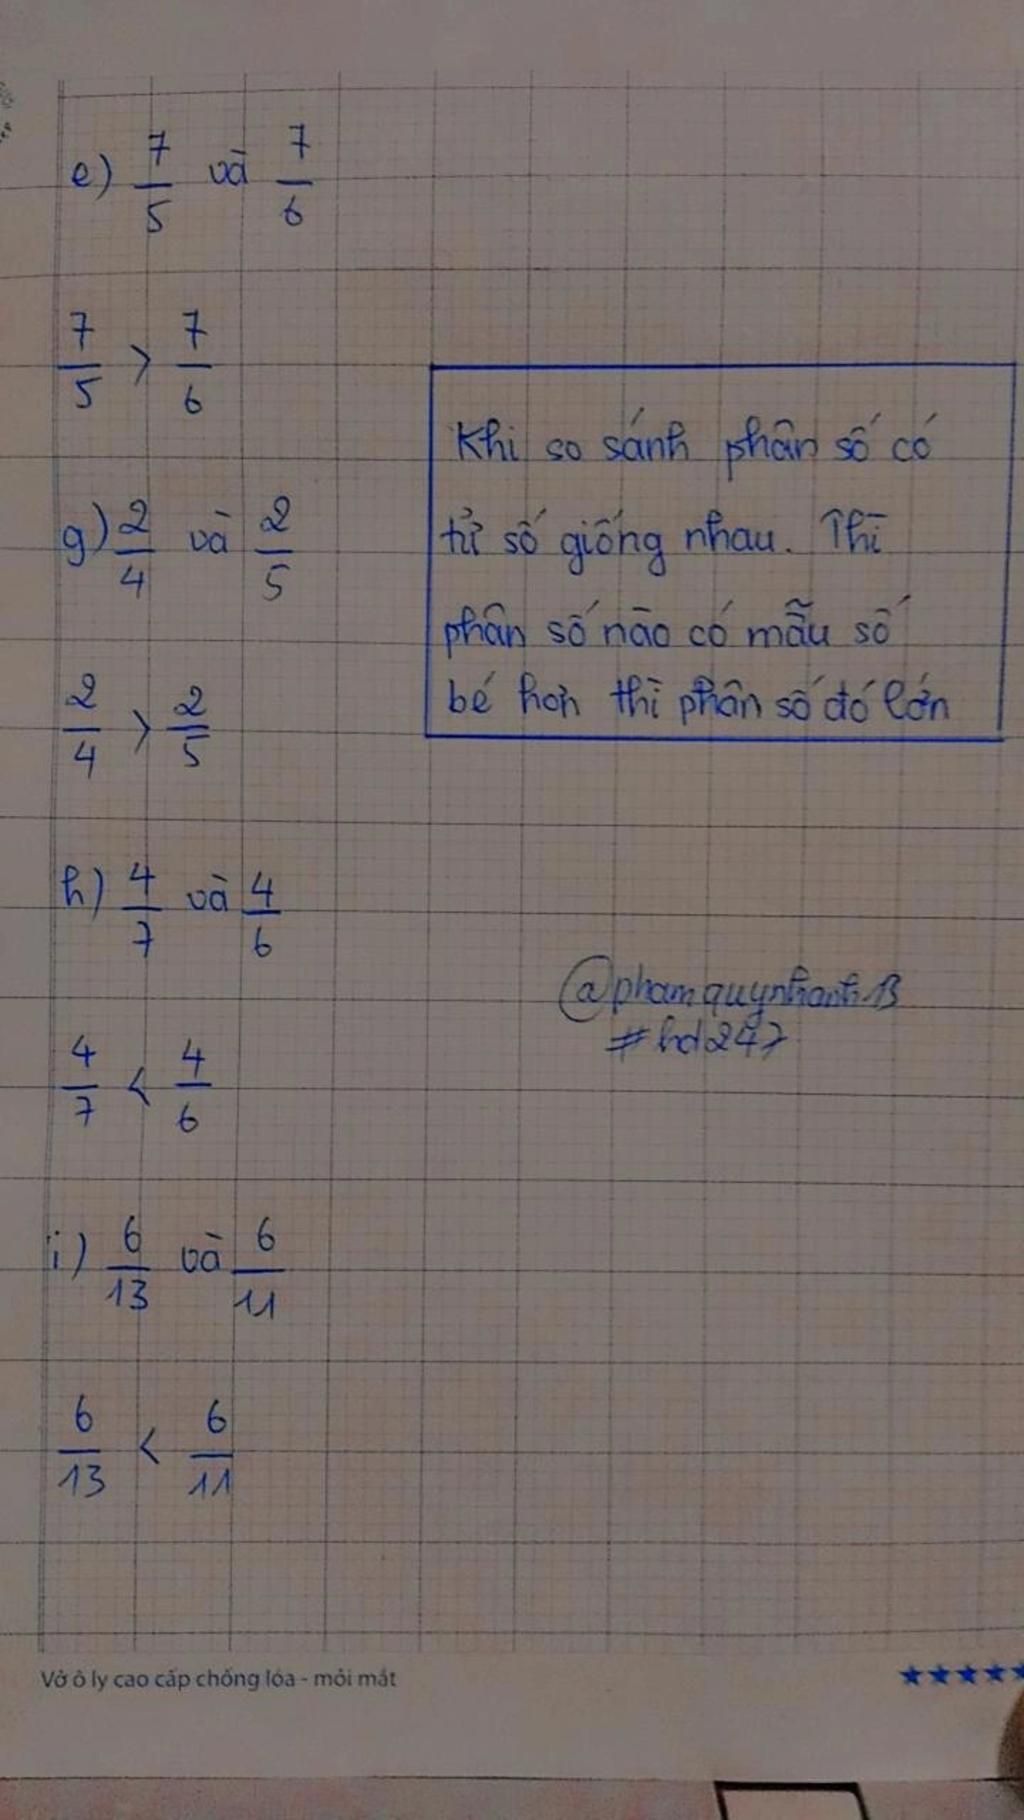 e) 7/5 và 7/6
7/5 > 7/6
Khi so sánh phân số có
tử số giống nhau. Thì
phân số nào có mẫu số
bé hơn thì phân số đó lớn
g) 2/4 và 2/5
2/4 > 2/5
h) 4/7 và 4/6
4/7 < 4/6
@phamquynhanh13
#hd247
i) 6/13 và 6/11
6/13 < 6/11
Vở ô ly cao cấp chống lóa - mỏi mắt